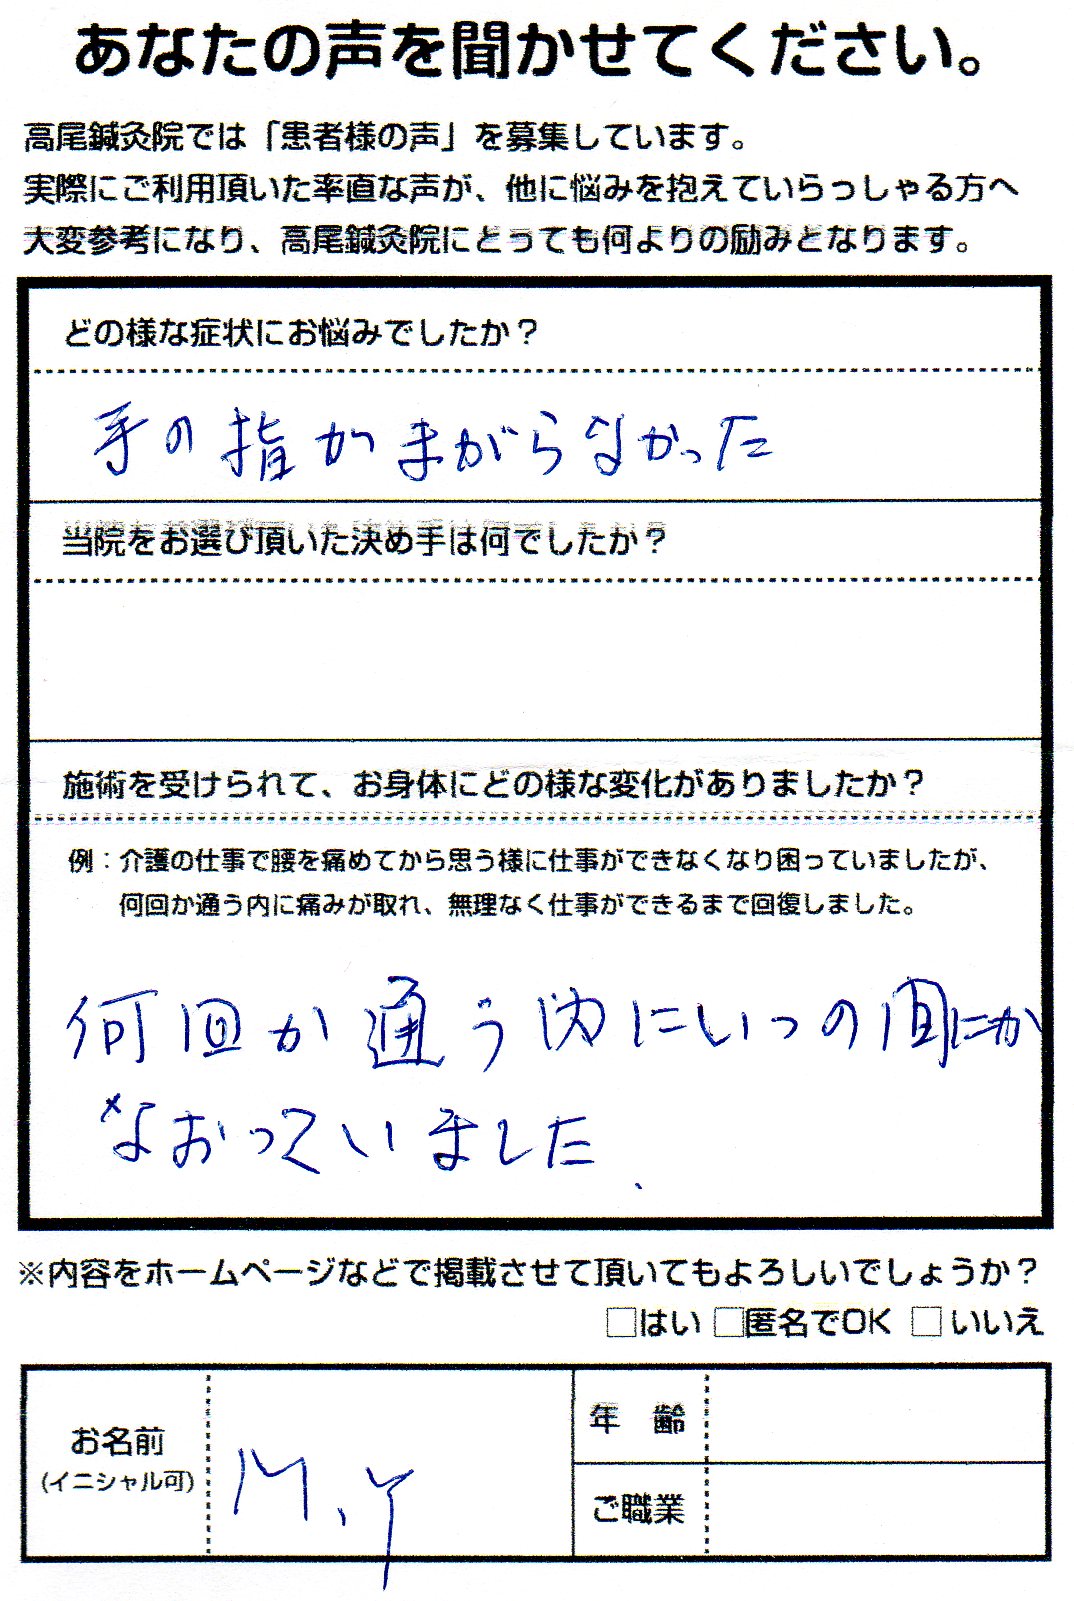 あなたの声を聞かせてください。
高尾鍼灸院では「患者様の声」を募集しています。
実際にご利用頂いた率直な声が、他に悩みを抱えていらっしゃる方へ
大変参考になり、高尾鍼灸院にとっても何よりの励みとなります。
どの様な症状にお悩みでしたか？
手の指がまがらなかった
当院をお選び頂いた決め手は何でしたか？
施術を受けられて、お身体にどの様な変化がありましたか？
例：介護の仕事で腰を痛めてから思う様に仕事ができなくなり困っていましたが、
何回か通う内に痛みが取れ、無理なく仕事ができるまで回復しました。
何回か通う内にいつの間にか
なおっていました、
※内容をホームページなどで掲載させて頂いてもよろしいでしょうか？
□はい □匿名でOK □いいえ
お名前
(イニシャル可)
M.Y
年 齢
ご職業